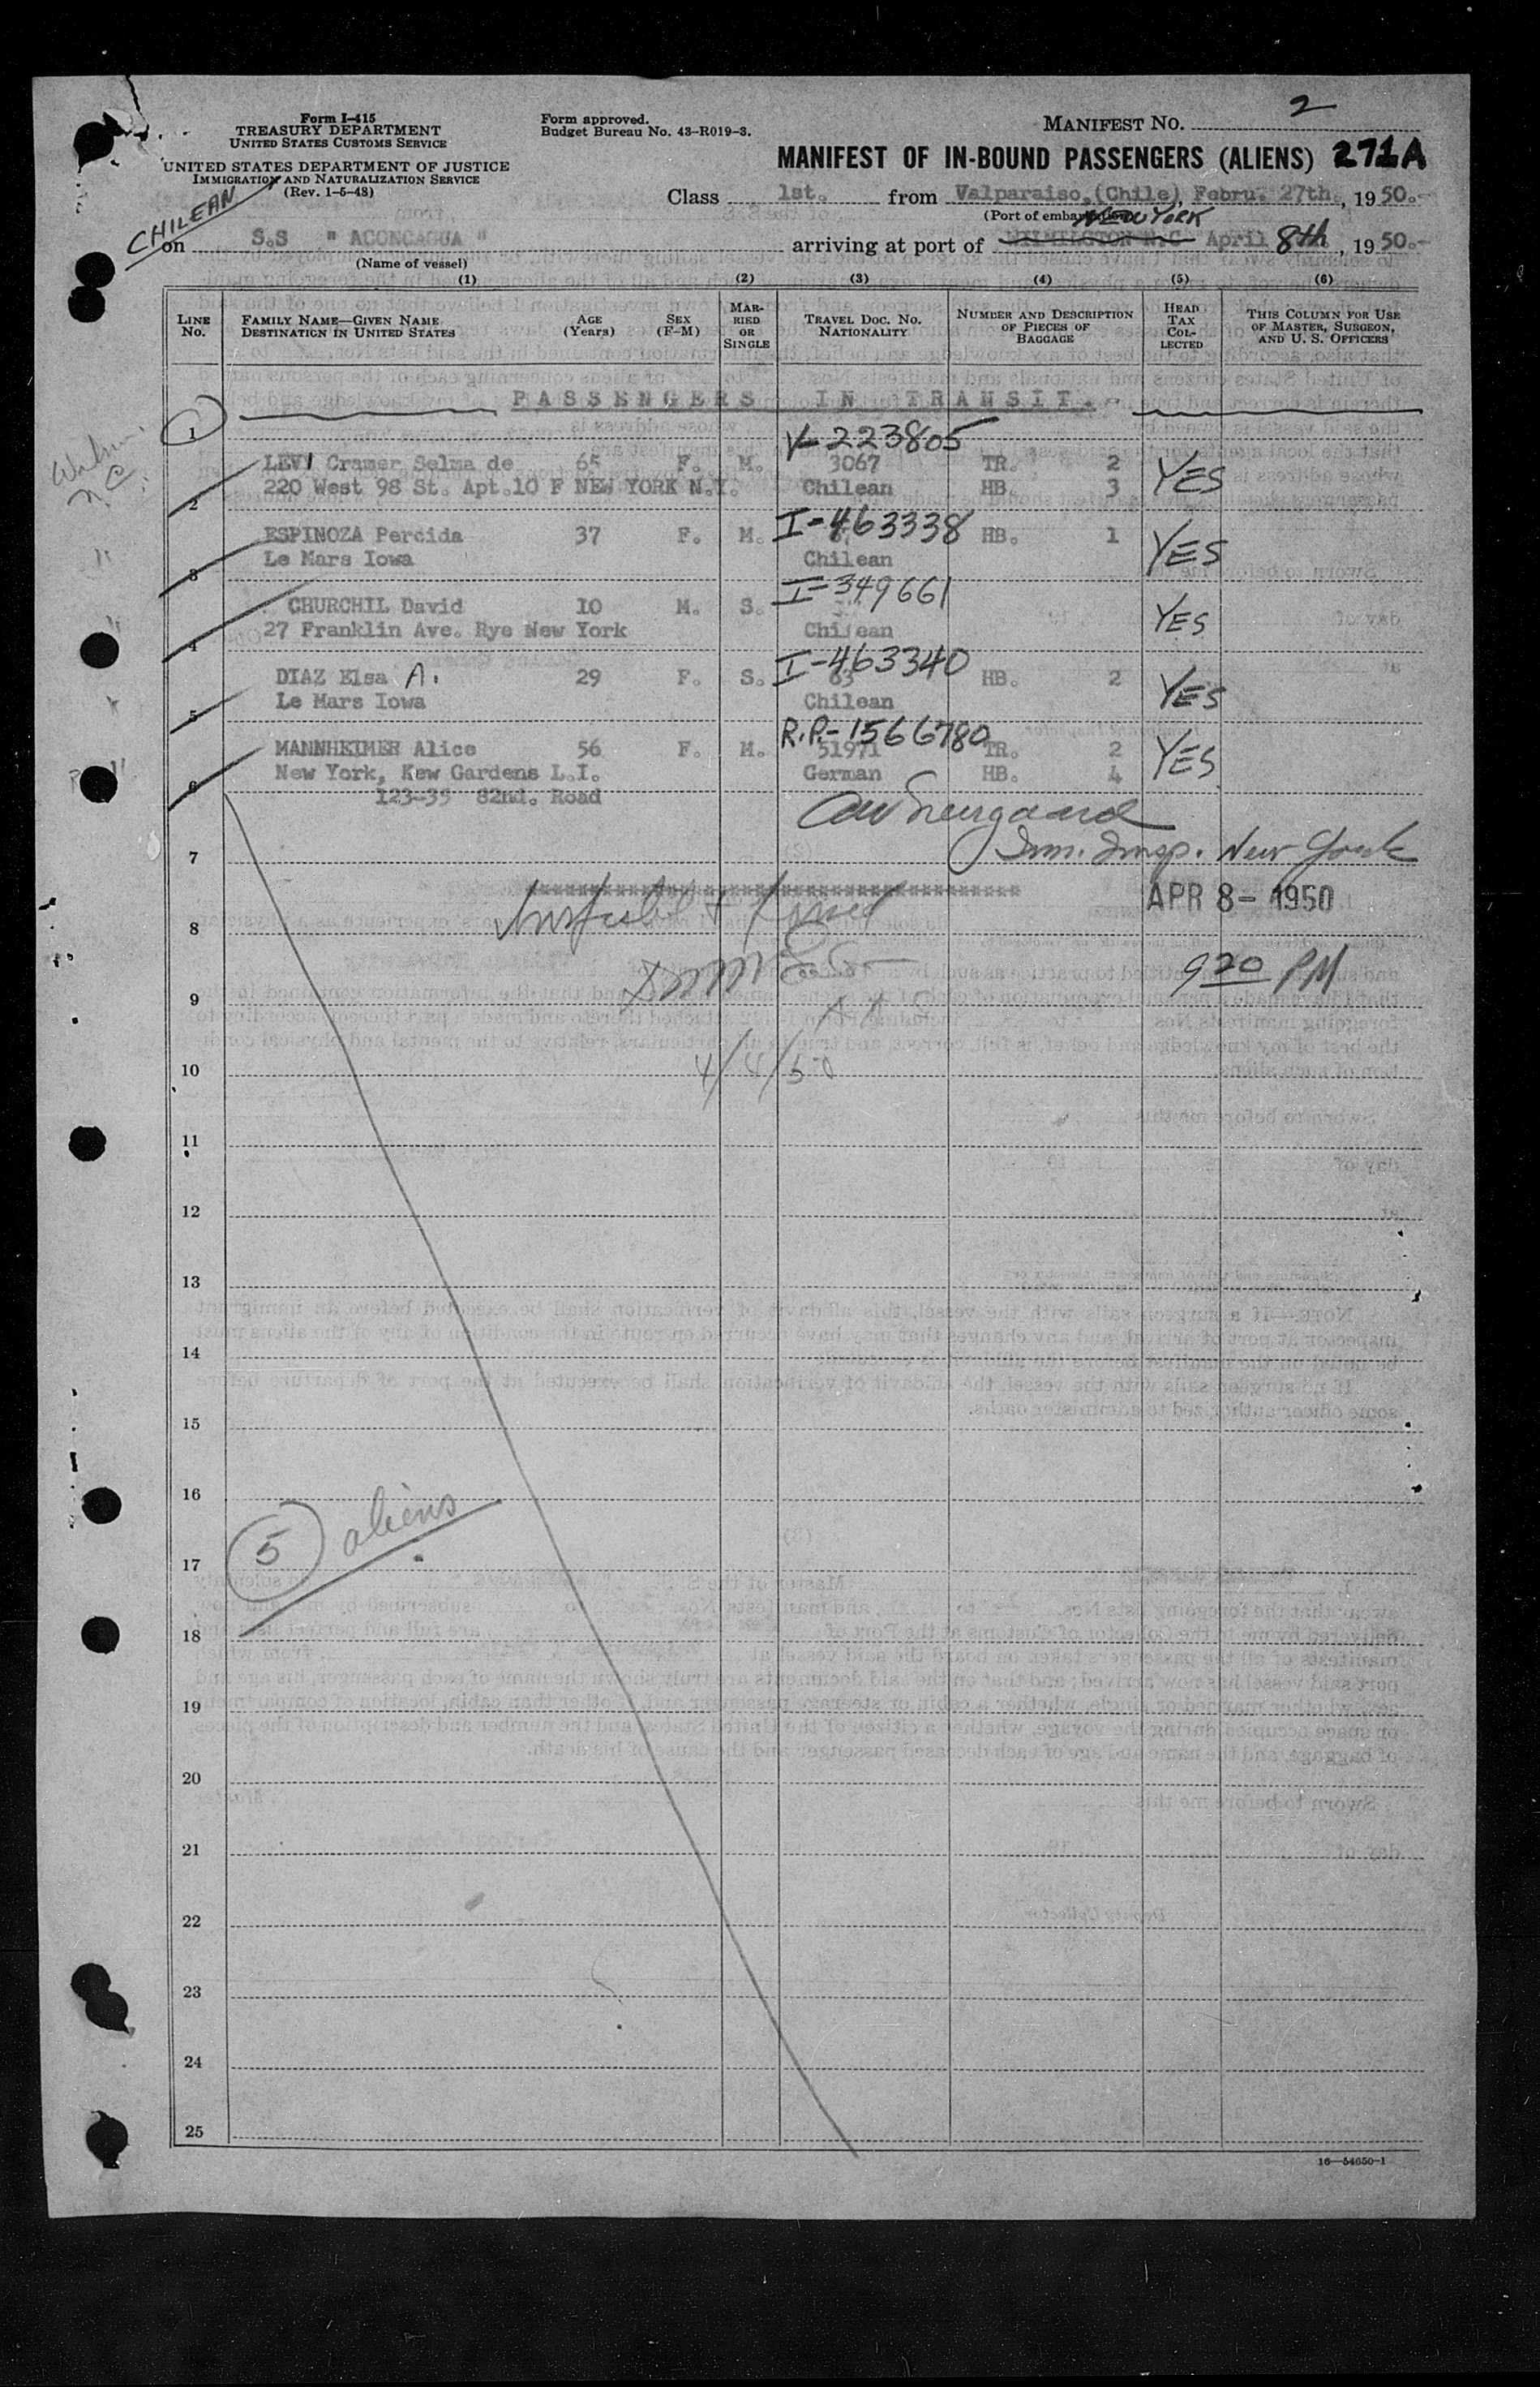 Form I-415
TREASURY DEPARTMENT
UNITED STATES CUSTOMS SERVICE
UNITED STATES DEPARTMENT OF JUSTICE
IMMIGRATION AND NATURALIZATION SERVICE
(Rev. 1-5-48)
Form approved.
Budget Bureau No. 43-R019-3.
MANIFEST NO. 2
MANIFEST OF IN-BOUND PASSENGERS (ALIENS) 271A
Class 1st. from Valparaiso,(Chile), Febru. 27th, 1950.-
(Port of embarkation)
CHILEAN
NEW YORK
on S.S " ACONCAGUA " arriving at port of WILMILGTON N.C April 8th, 1950.-
(Name of vessel)
(1) (2) (3) (4) (5) (6)
LINE NO. FAMILY NAME—GIVEN NAME DESTINATION IN UNITED STATES AGE (Years) SEX (F-M) MARRIED OR SINGLE TRAVEL DOC. NO. NATIONALITY NUMBER AND DESCRIPTION OF PIECES OF BAGGAGE HEAD TAX COLLECTED THIS COLUMN FOR USE OF MASTER, SURGEON, AND U. S. OFFICERS
PASSENGERS IN TRANSIT.
1
V-223805
LEVI Cramer Selma de 65 F. M. 3067 TR. 2 YES
220 West 98 St. Apt.10 F NEW YORK N.Y. Chilean HB. 3
N.C.
2
I-463338
ESPINOZA Percida 37 F. M. HB. 1 YES
Le Mars Iowa Chilean
3
I-349661
CHURCHIL David 10 M. S. YES
27 Franklin Ave. Rye New York Chilean
4
I-463340
DIAZ Elsa A. 29 F. S. 63 HB. 2 YES
Le Mars Iowa Chilean
5
R.P.-1566780
MANNHEIMER Alice 56 F. M. 51971 TR. 2 YES
New York, Kew Gardens L.I. German HB. 4
6
123-35 82nd. Road
Imm. Insp. New York
7
APR 8- 1950
8
920 PM
9
4/4/50
10
11
12
13
14
15
16
5 aliens
17
18
19
20
21
22
23
24
25
16—54650-1